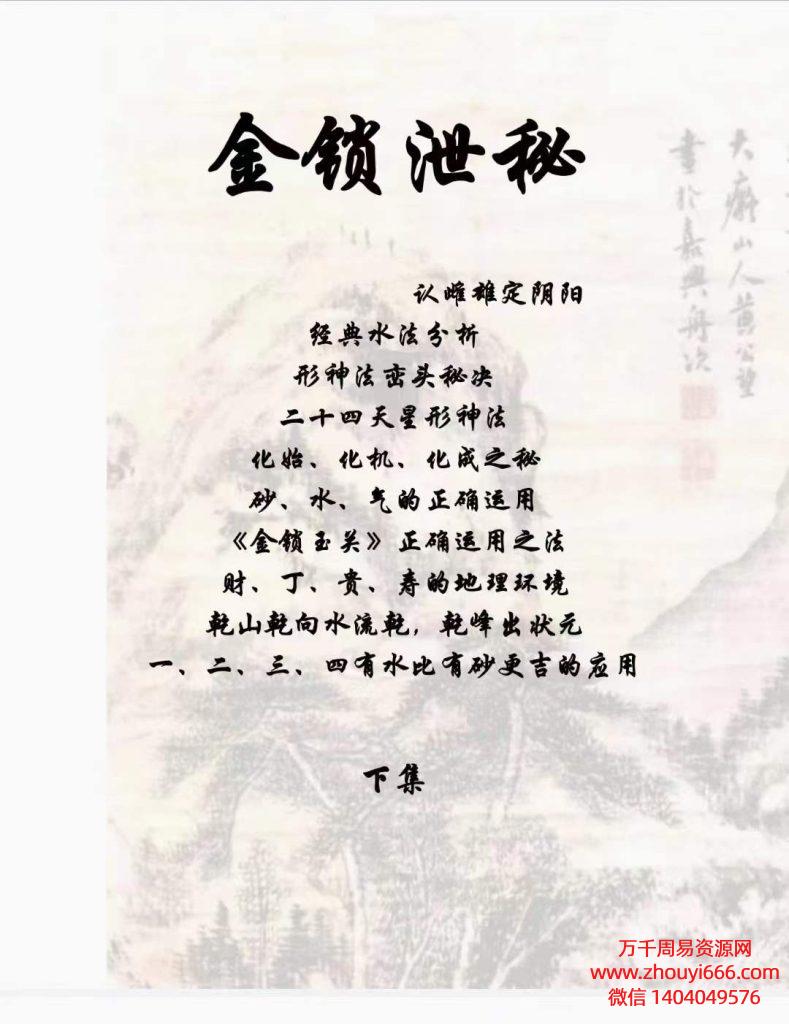 金锁泄秘
认雌雄定阴阳
经典水法分析
形神法峦头秘决
二十四天星形神法
化始、化机、化成之秘
砂、水、气的正确运用
《金锁玉关》正确运用之法
财、丁、贵、寿的地理环境
乾山乾向水流乾，乾峰出状元
一、二、三、四有水比有砂更吉的应用
下集
大癡山人黄公望
書於嘉興舟次
万千周易资源网
www.zhouyi666.com
微信 1404049576